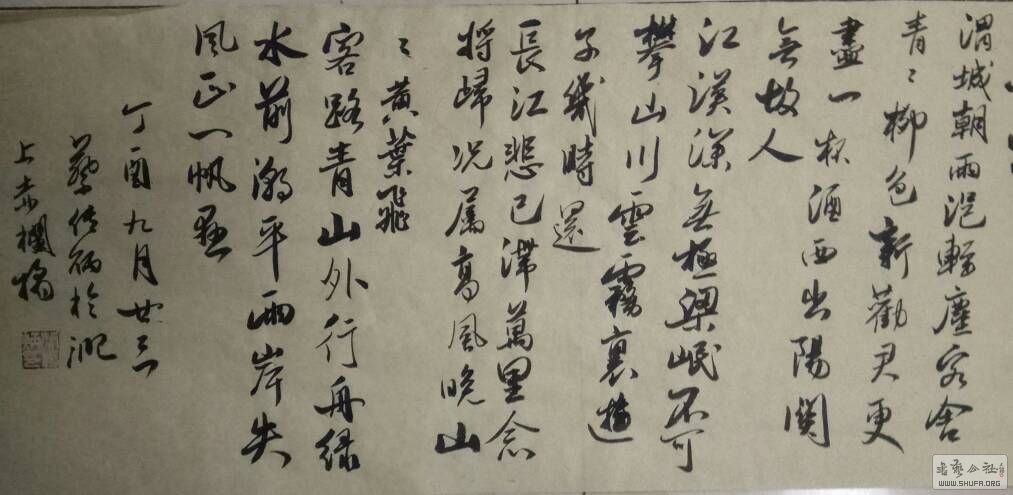 渭城朝雨浥輕塵客舍
青〻柳色新勸君更
盡一杯酒西出陽關
無故人
江漢深無極梁岷不可
攀山川雲霧裏遊
子幾時還
長江悲已滯萬里念
將歸况屬高風晚山
〻黃葉飛
客路青山外行舟綠
水前潮平兩岸失
風正一帆懸
丁酉九月廿三
於淝
上赤欄橋
書藝公社
WWW.SHUFA.ORG